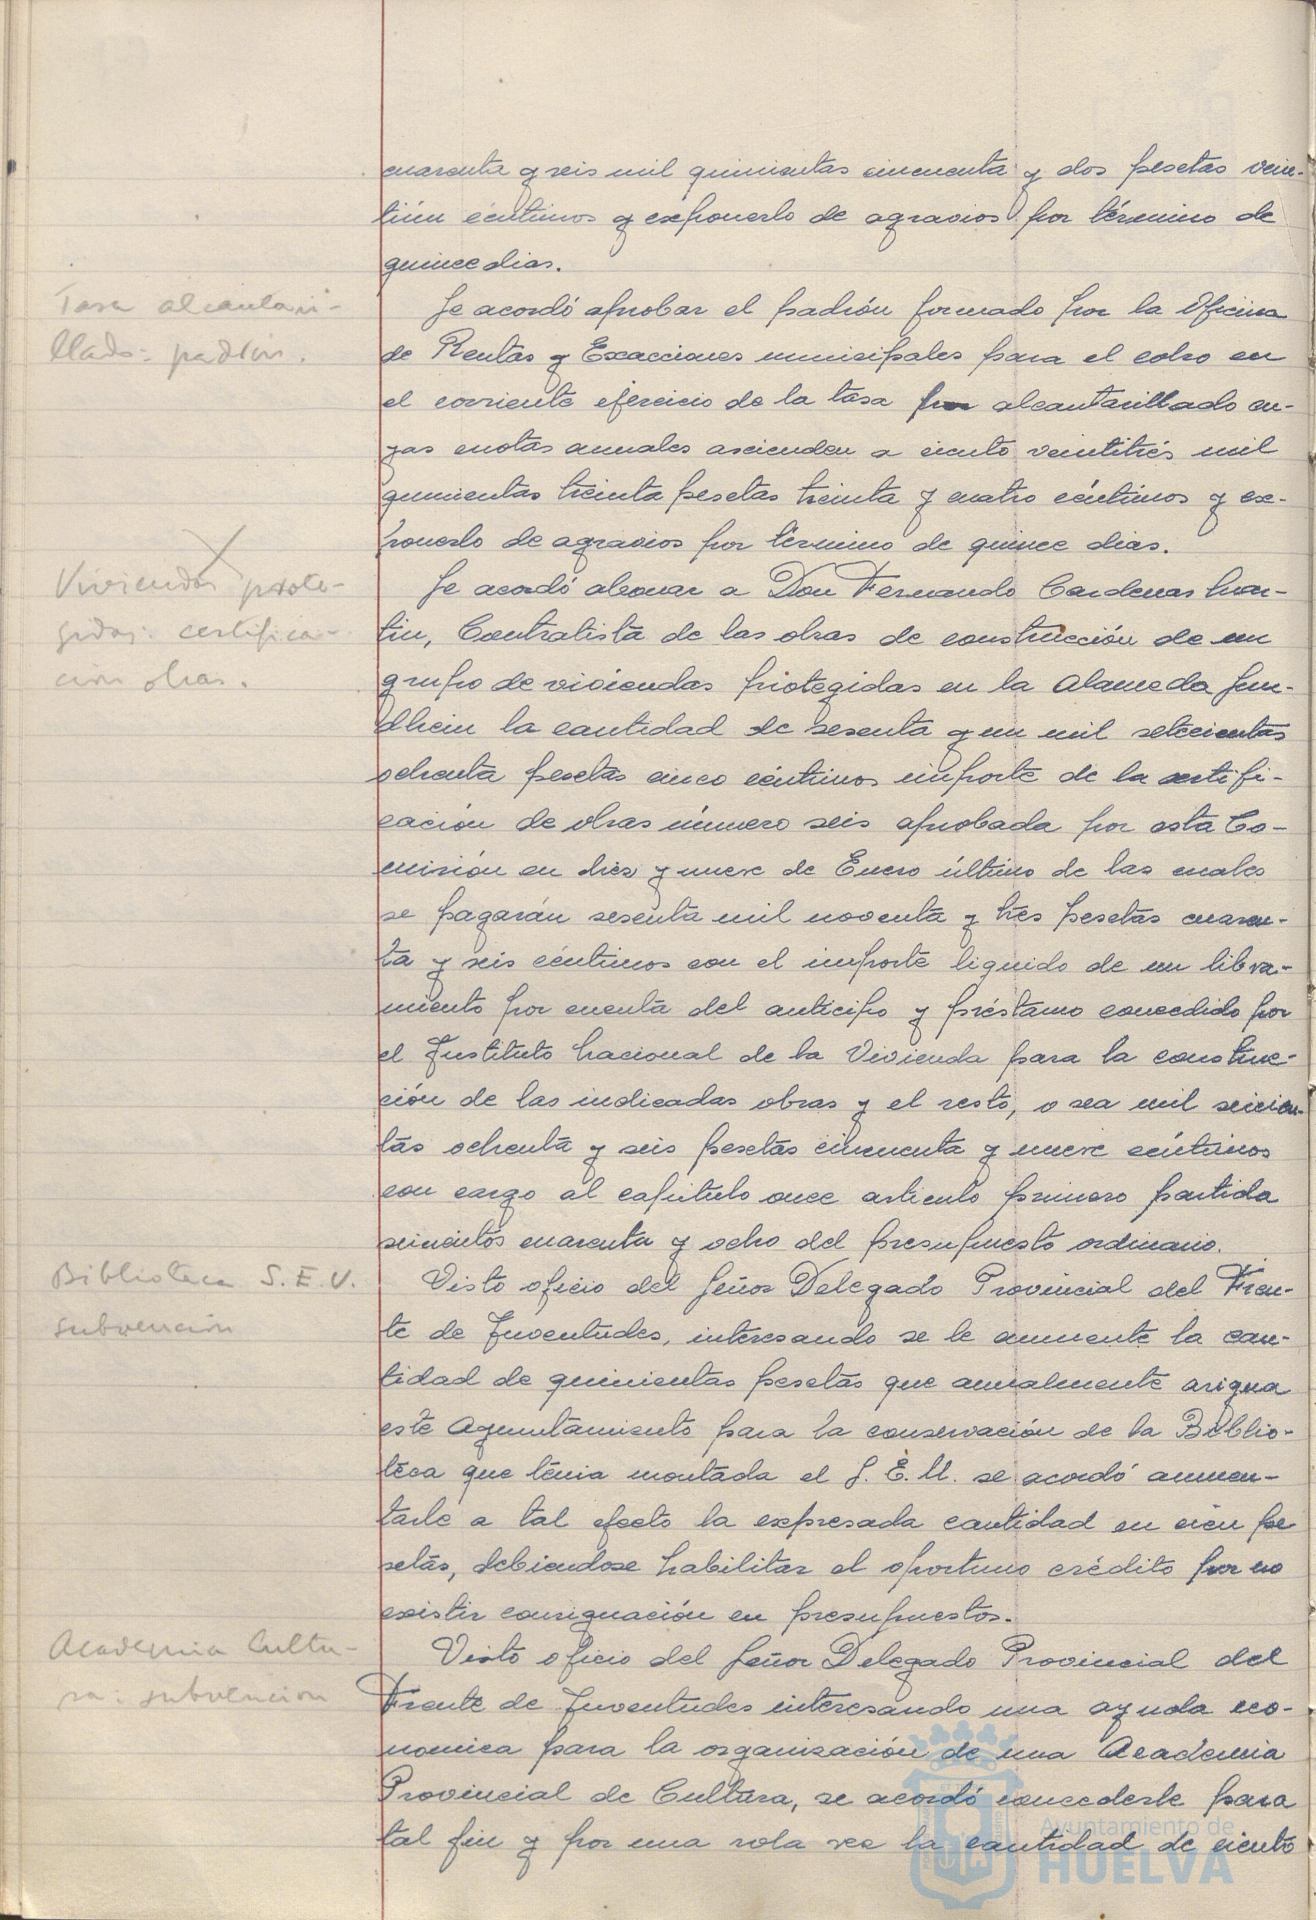 cuarenta y seis mil quinientas cincuenta y dos pesetas vein-
tiún céntimos y exponerlo de agravios por término de
quince dias.
Tasa alcantari-
llado: padrón.
Se acordó aprobar el padrón formado por la Oficina
de Rentas y Exacciones municipales para el cobro en
el corriente ejercicio de la tasa por alcantarillado cu-
yas cuotas anuales ascienden a ciento veintitrés mil
quinientas treinta pesetas treinta y cuatro céntimos y ex-
ponerlo de agravios por término de quince dias.
Viviendas prote-
gidas: certifica-
ción obras.
Se acordó abonar a Don Fernando Cardenas Mar-
tin, Contratista de las obras de construcción de un
grupo de viviendas protegidas en la Alameda Sun-
dheim la cantidad de sesenta y un mil setecientas
ochenta pesetas cinco céntimos importe de la certifi-
cación de obras número seis aprobada por esta Co-
misión en diez y nueve de Enero último de las cuales
se pagarán sesenta mil noventa y tres pesetas cuaren-
ta y seis céntimos con el importe liquido de un libra-
miento por cuenta del anticipo y préstamo concedido por
el Instituto Nacional de la Vivienda para la construc-
ción de las indicadas obras y el resto, o sea mil seiscien-
tas ochenta y seis pesetas cincuenta y nueve céntimos
con cargo al capitulo once articulo primero partida
seiscientos cuarenta y ocho del presupuesto ordinario.
Biblioteca S.E.U.
subvención
Visto oficio del Señor Delegado Provincial del Fren-
te de Juventudes, interesando se le aumente la can-
tidad de quinientas pesetas que anualmente asigna
este Ayuntamiento para la conservación de la Biblio-
teca que tenia montada el S.E.U. se acordó aumen-
tarle a tal efecto la expresada cantidad en cien pe
setas, debiendose habilitar el oportuno crédito por no
existir consignación en presupuestos.
Academia Cultu-
ra: subvencion
Visto oficio del Señor Delegado Provincial del
Frente de Juventudes interesando una ayuda eco-
nomica para la organización de una Academia
Provincial de Cultura, se acordó concederle para
tal fin y por una sola vez la cantidad de ciento
Ayuntamiento de
HUELVA